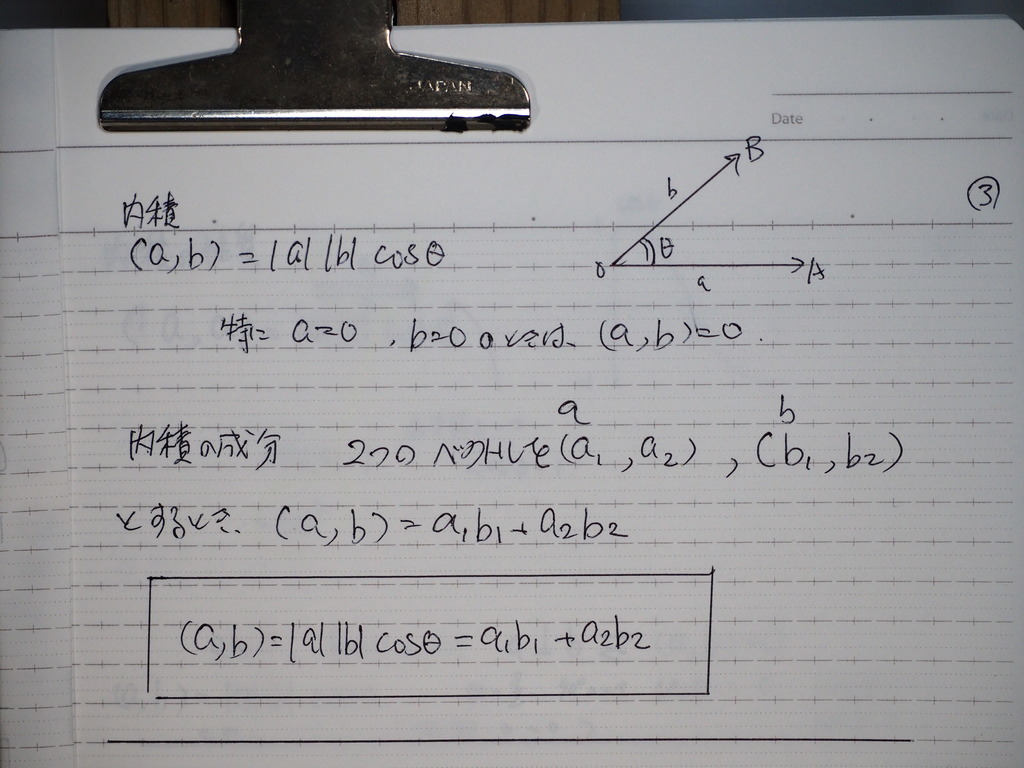 JAPAN
Date
③
内積
(a,b) = |a| |b| cosθ
B
b
θ
O
a
A
特に a=0 , b=0 のときは、(a,b)=0.
a b
内積の成分 2つの ベクトルを(a₁,a₂) , (b₁,b₂)
とするとき、(a,b) = a₁b₁+a₂b₂
(a,b)=|a| |b| cosθ = a₁b₁ + a₂b₂